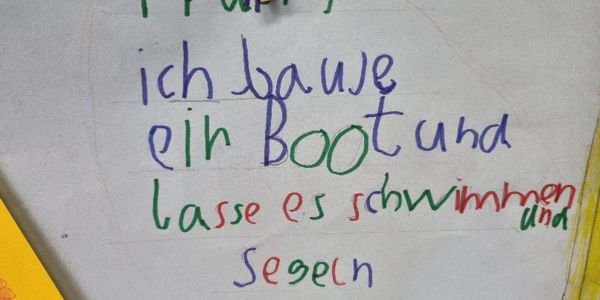 ich bause
ein Boot und
lasse es schwimmen
und
segeln